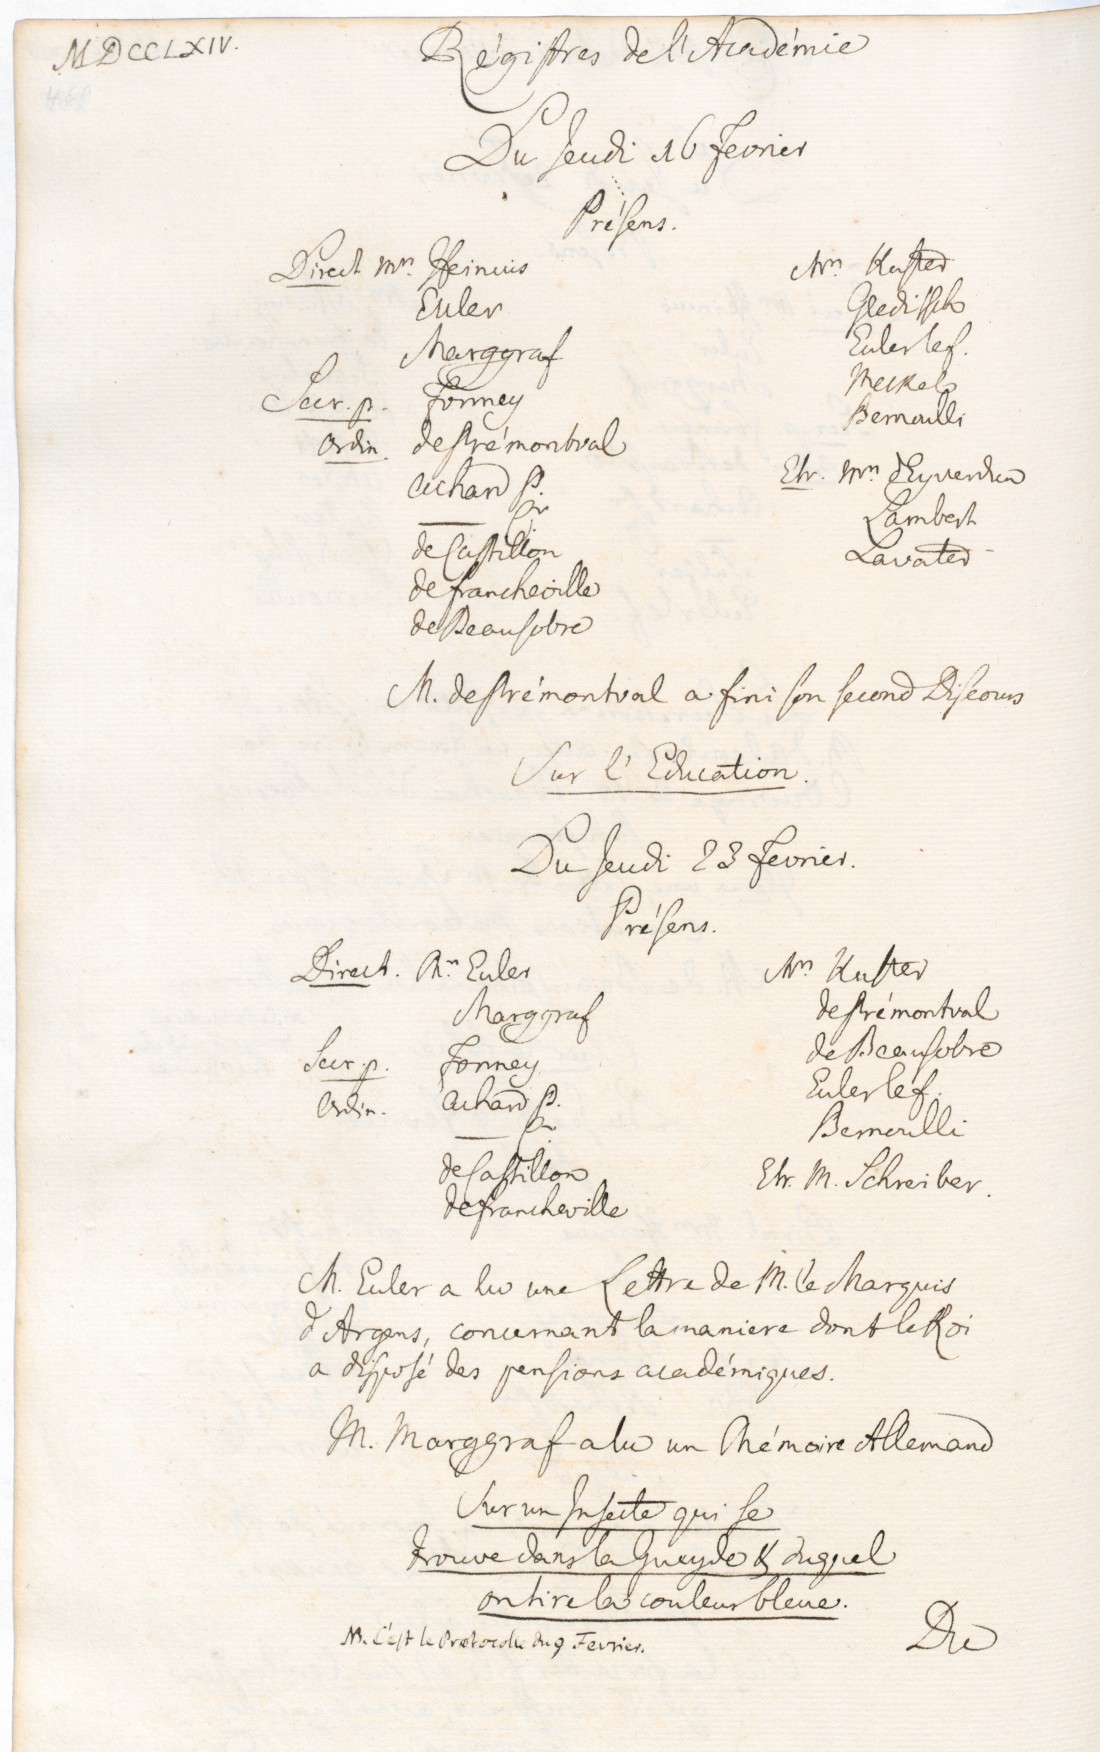 MDCCLXIV.
Régistres de l'Académie
Du Jeudi 16 Fevrier
Présens.
Direct. Mrs. Heinius
Euler
Marggraf
Secr. p. Formey
Ordin. de Prémontval
Achard P.
— Fr.
de Castillon
de Francheville
de Beausobre
Mrs. Kuster
Gleditsch
Euler le f.
Meckel
Bernoulli
Etr. Mrs. d'Eyverdun
Lambert
Lavater
M. de Prémontval a fini son second Discours
Sur l'Education.
Du Jeudi 23 Fevrier.
Présens.
Direct. Mrs. Euler
Marggraf
Secr. p. Formey
Ordin. Achard P.
— Fr.
de Castillon
de Francheville
Mrs. Kuster
de Prémontval
de Beausobre
Euler le f.
Bernoulli
Etr. M. Schreiber.
M. Euler a lu une Lettre de M. le Marquis
d'Argens, concernant la maniere dont le Roi
a disposé des pensions académiques.
M. Marggraf a lu un Mémoire Allemand
Sur un Insecte qui se
trouve dans la Gueyde & duquel
on tire la couleur bleue.
NB. C'est le Protocole du 9 Fevrier.
Du